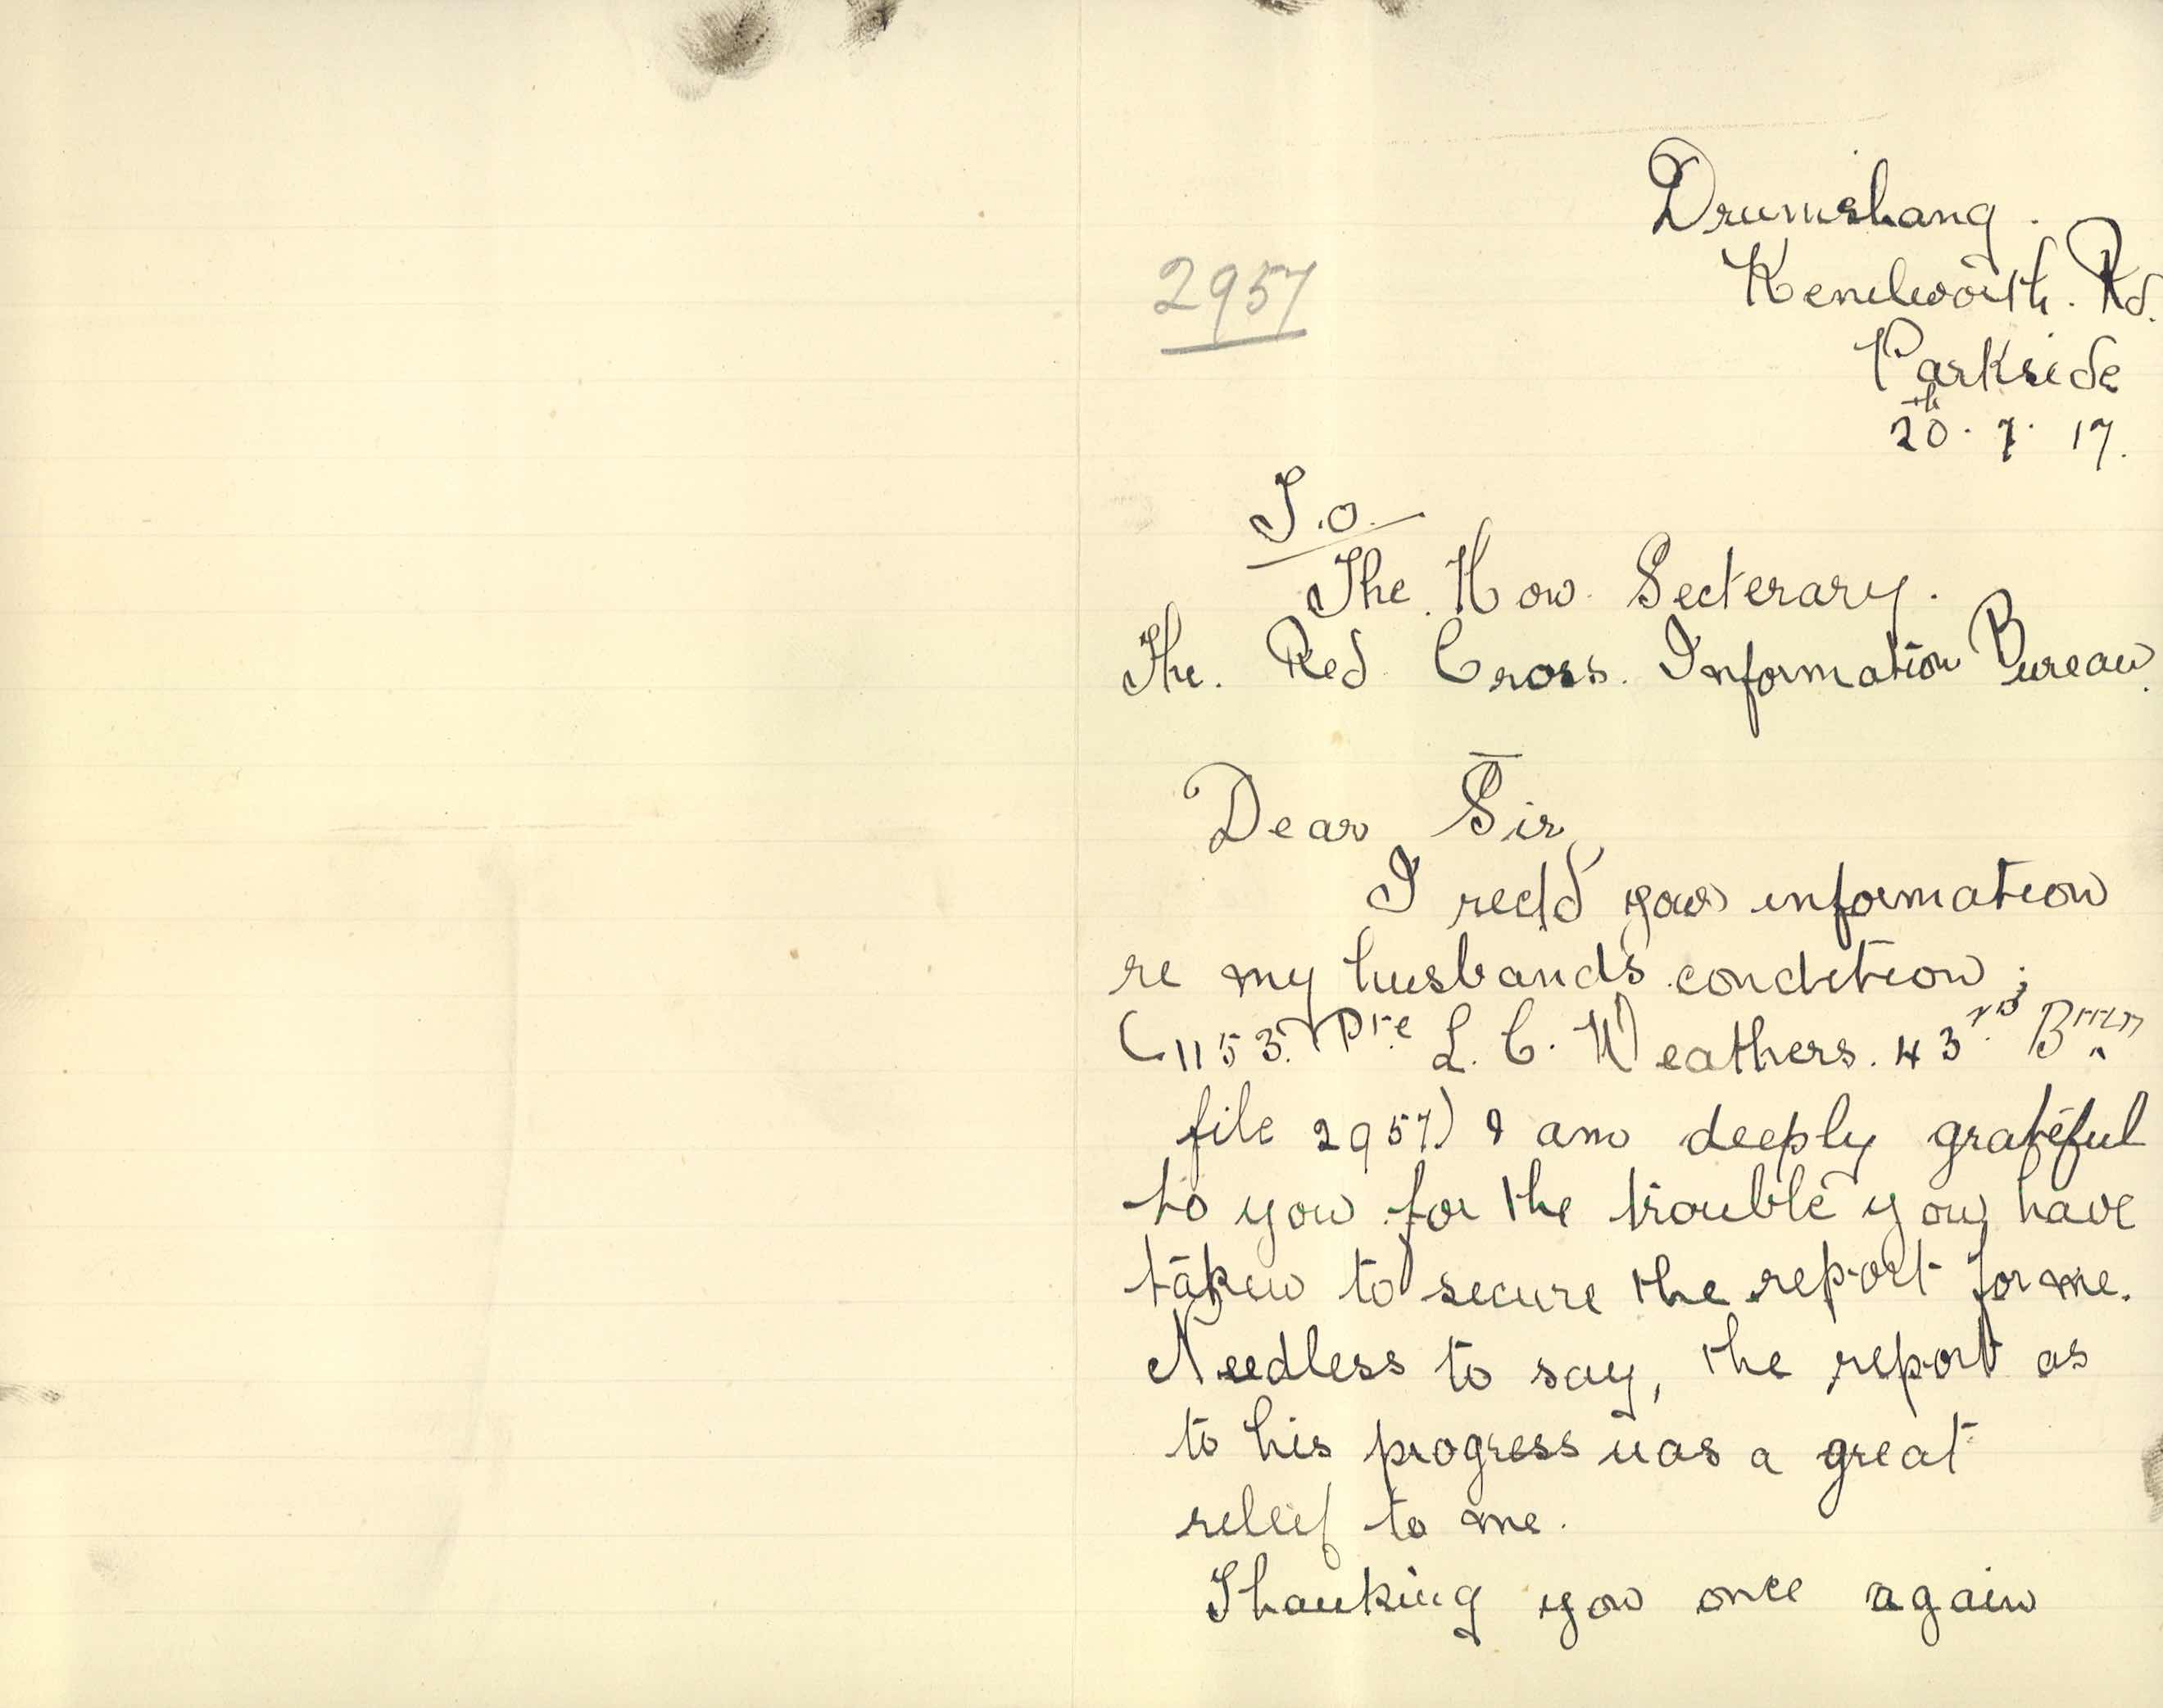 Drumshang.
2957
Kenilworth. Rd.
Parkside
20th. 7. 17.
To.
The. Hon. Secterary.
The. Red. Cross. Information Bureau.
Dear Sir,
I recd your information
re my husbands condition;
(1153. Pte L. C. Weathers. 43rd Battn
file 2957) I am deeply grateful
to you for the trouble you have
taken to secure the report for me.
Needless to say, the report as
to his progress was a great
releif to me.
Thanking you once again